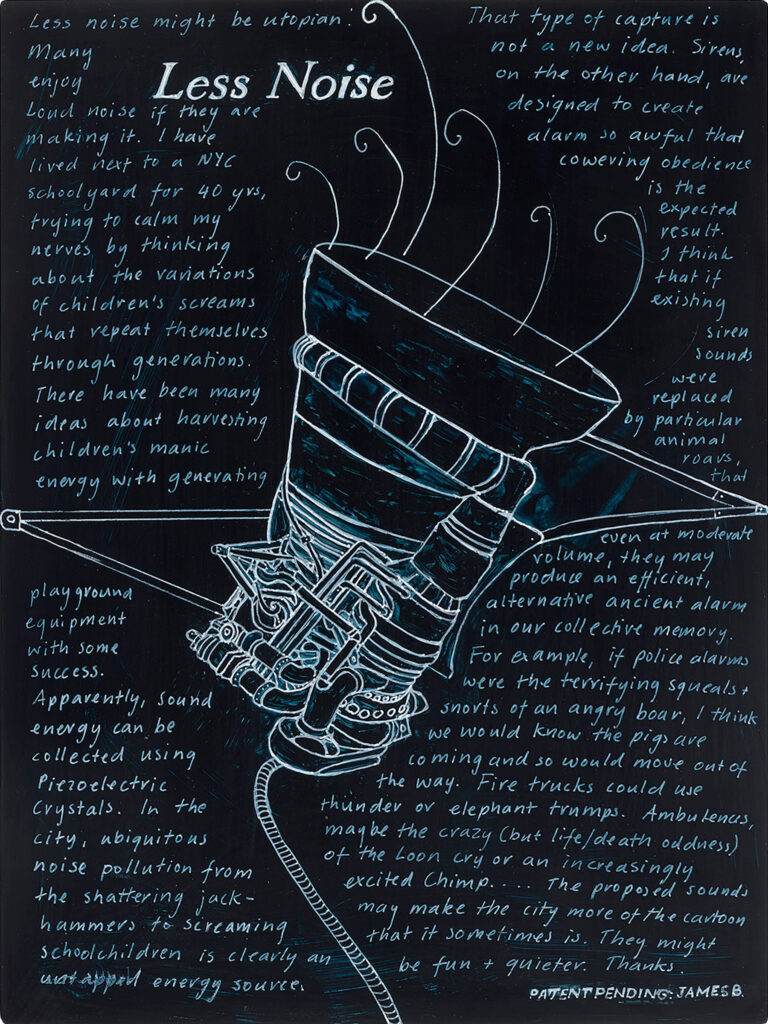 Less Noise
Less noise might be utopian:
Many
enjoy
Loud noise if they are
making it. I have
lived next to a NYC
schoolyard for 40 yrs,
trying to calm my
nerves by thinking
about the variations
of children's screams
that repeat themselves
through generations.
There have been many
ideas about harvesting
children's manic
energy with generating
playground
equipment
with some
success.
Apparently, sound
energy can be
collected using
Piezoelectric
Crystals. In the
city, ubiquitous
noise pollution from
the shattering jack-
hammers to screaming
schoolchildren is clearly an
untapped energy source.
That type of capture is
not a new idea. Sirens,
on the other hand, are
designed to create
alarm so awful that
cowering obedience
is the
expected
result.
I think
that if
existing
siren
sounds
were
replaced
by particular
animal
roars,
that
even at moderate
volume, they may
produce an efficient,
alternative ancient alarm
in our collective memory.
For example, if police alarms
were the terrifying squeals +
snorts of an angry boar, I think
we would know the pigs are
coming and so would move out of
the way. Fire trucks could use
thunder or elephant trumps. Ambulences,
maybe the crazy (but life/death oddness)
of the Loon cry or an increasingly
excited Chimp.... The proposed sounds
may make the city more of the cartoon
that it sometimes is. They might
be fun + quieter. Thanks.
PATENT PENDING: JAMES B.